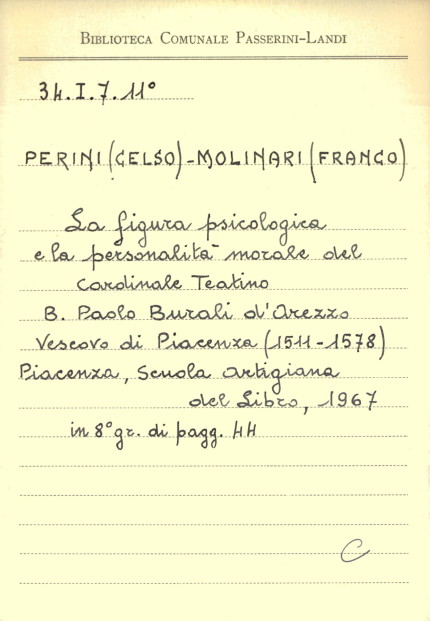 BIBLIOTECA COMUNALE PASSERINI-LANDI
34.I.7.11°
PERINI (CELSO) - MOLINARI (FRANCO)
La figura psicologica
e la personalità morale del
Cardinale Teatino
B. Paolo Burali d'Arezzo
Vescovo di Piacenza (1511-1578)
Piacenza, Scuola artigiana
del Libro, 1967
in 8° gr. di pagg. 44
C